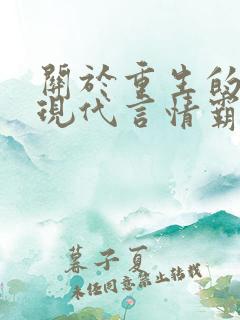 關於重生的
現代言情霸
暮子夏
未經同意禁止轉載